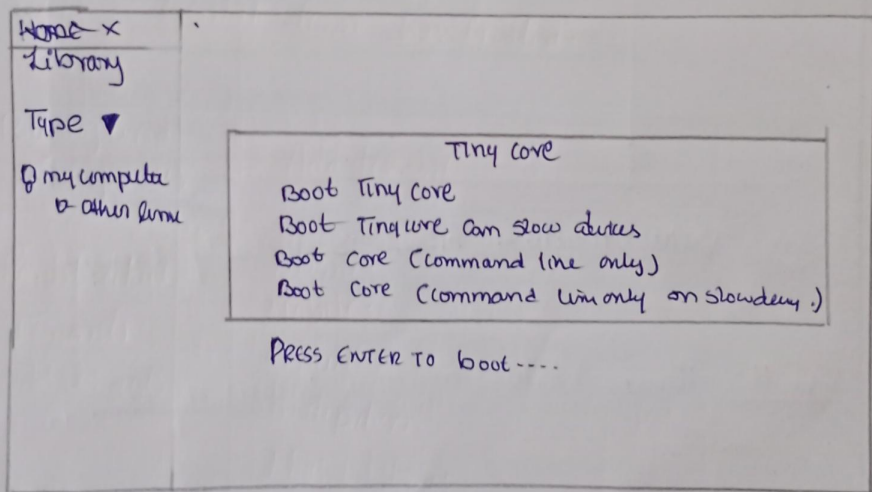 Home x
Library
Type ▼
my computer
other linux
Tiny Core
Boot Tiny Core
Boot Tiny core on slow devices
Boot Core (command line only)
Boot Core (command line only on slow
PRESS ENTER TO boot....